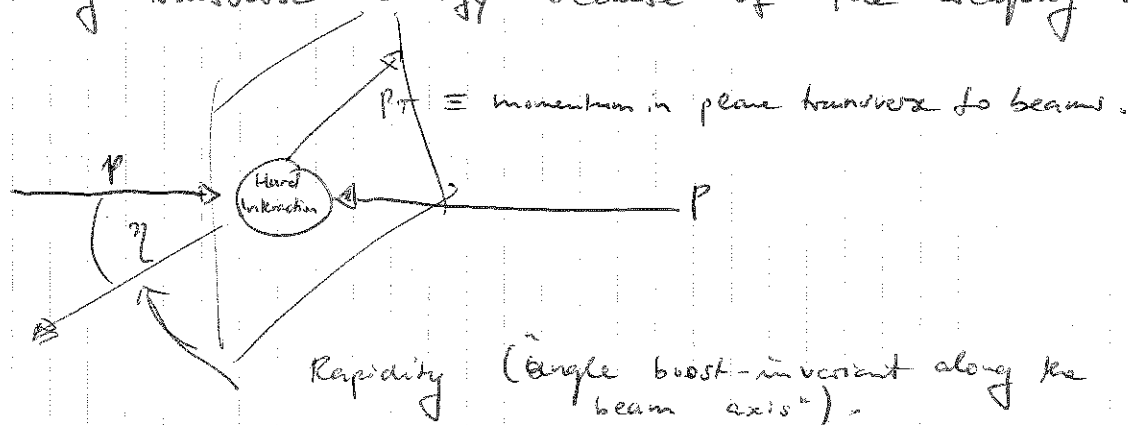 transverse because of the
P_T ≡ momentum in plane transverse to beams.
p
Hard
Interaction
P
η
Rapidity ("angle boost-invariant along the
beam axis").